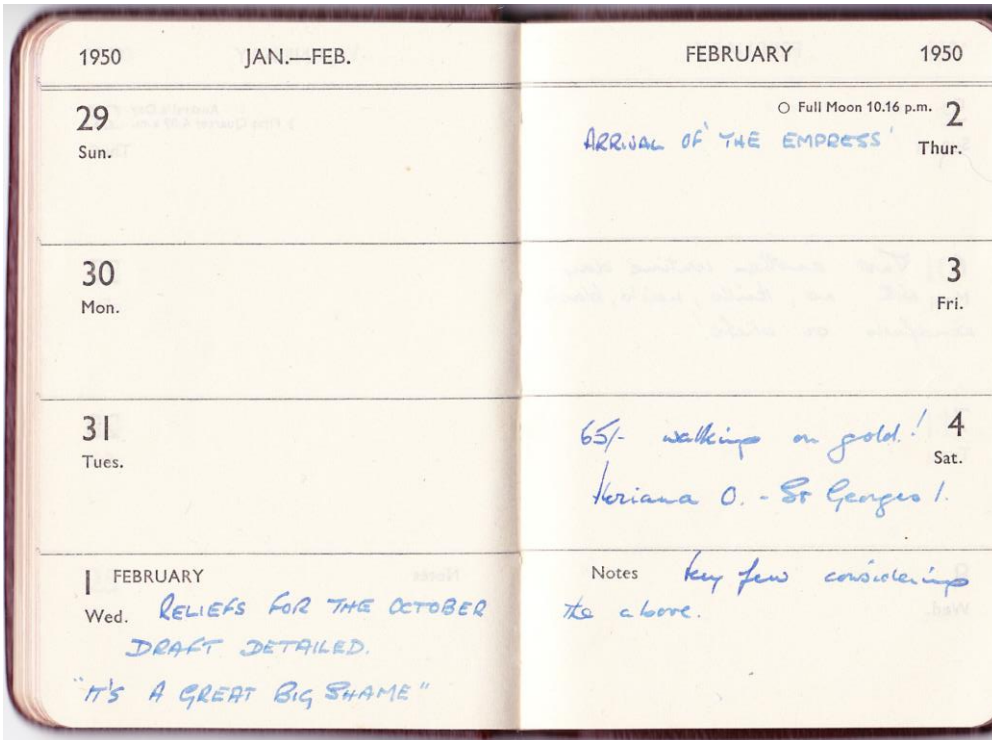 1950 JAN.—FEB.
29
Sun.
30
Mon.
31
Tues.
1 FEBRUARY
Wed. RELIEFS FOR THE OCTOBER
DRAFT DETAILED.
"IT'S A GREAT BIG SHAME"
FEBRUARY 1950
○ Full Moon 10.16 p.m. 2
ARRIVAL OF 'THE EMPRESS' Thur.
3
Fri.
65/- walking on gold! 4
Sat.
O. - St Georges 1.
Notes few considering
the above.